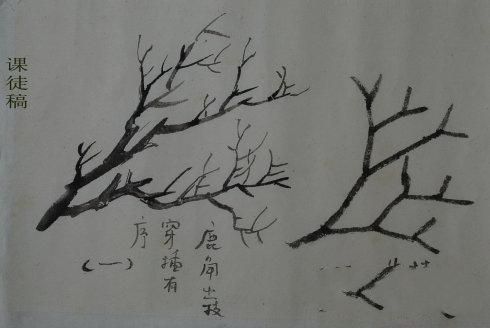 课徒稿
鹿角出枝
穿插有
序
(一)